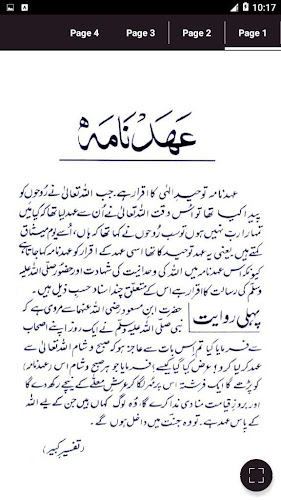 10:17
Page 4 Page 3 Page 2 Page 1
عہد نامہ
عہد نامہ توحیدِ الہٰی کا اقرار ہے۔ جب اللہ تعالیٰ نے رُوحوں کو
پیدا کیا تھا تو اس وقت اللہ تعالیٰ نے اُن سے عہد لیا تھا کہ کیا میں
تمہارا رب نہیں ہوں تو سب رُوحوں نے کہا تھا کہ ہاں، اُسے یومِ میثاق
کہتے ہیں۔ یعنی یہ عہد توحید کا تھا اسی عہد کے اقرار کو عہد نامہ کہا جاتا ہے
کیونکہ اس عہد نامہ میں اللہ کی وحدانیت کی شہادت اور حضور صلی اللہ علیہ
وسلم کی رسالت کا اقرار ہے اس کے متعلق چند اسناد حسب ذیل ہیں۔
پہلی روایت حضرت ابنِ مسعود رضی اللہ عنہما سے مروی ہے کہ
نبی صلی اللہ علیہ وسلم نے ایک روز اپنے اصحاب
سے فرمایا کیا تم اس بات سے عاجز ہو کہ صبح و شام اللہ تعالیٰ سے
عہد کر لیا کرو؟ عرض کیا گیا کیسے؟ فرمایا جو ہر صبح و شام اس (عہد نامہ) کو
پڑھے گا ایک فرشتہ اس پر مُہر لگا کر عرشِ معلّٰے کے نیچے رکھ دے گا
اور بروزِ قیامت منادی ندا کرے گا، وہ لوگ کہاں ہیں جن کے لیے اللہ
کے پاس عہد ہے۔ تو وہ جنت میں داخل ہوں گے۔
(تفسیرِ کبیر)